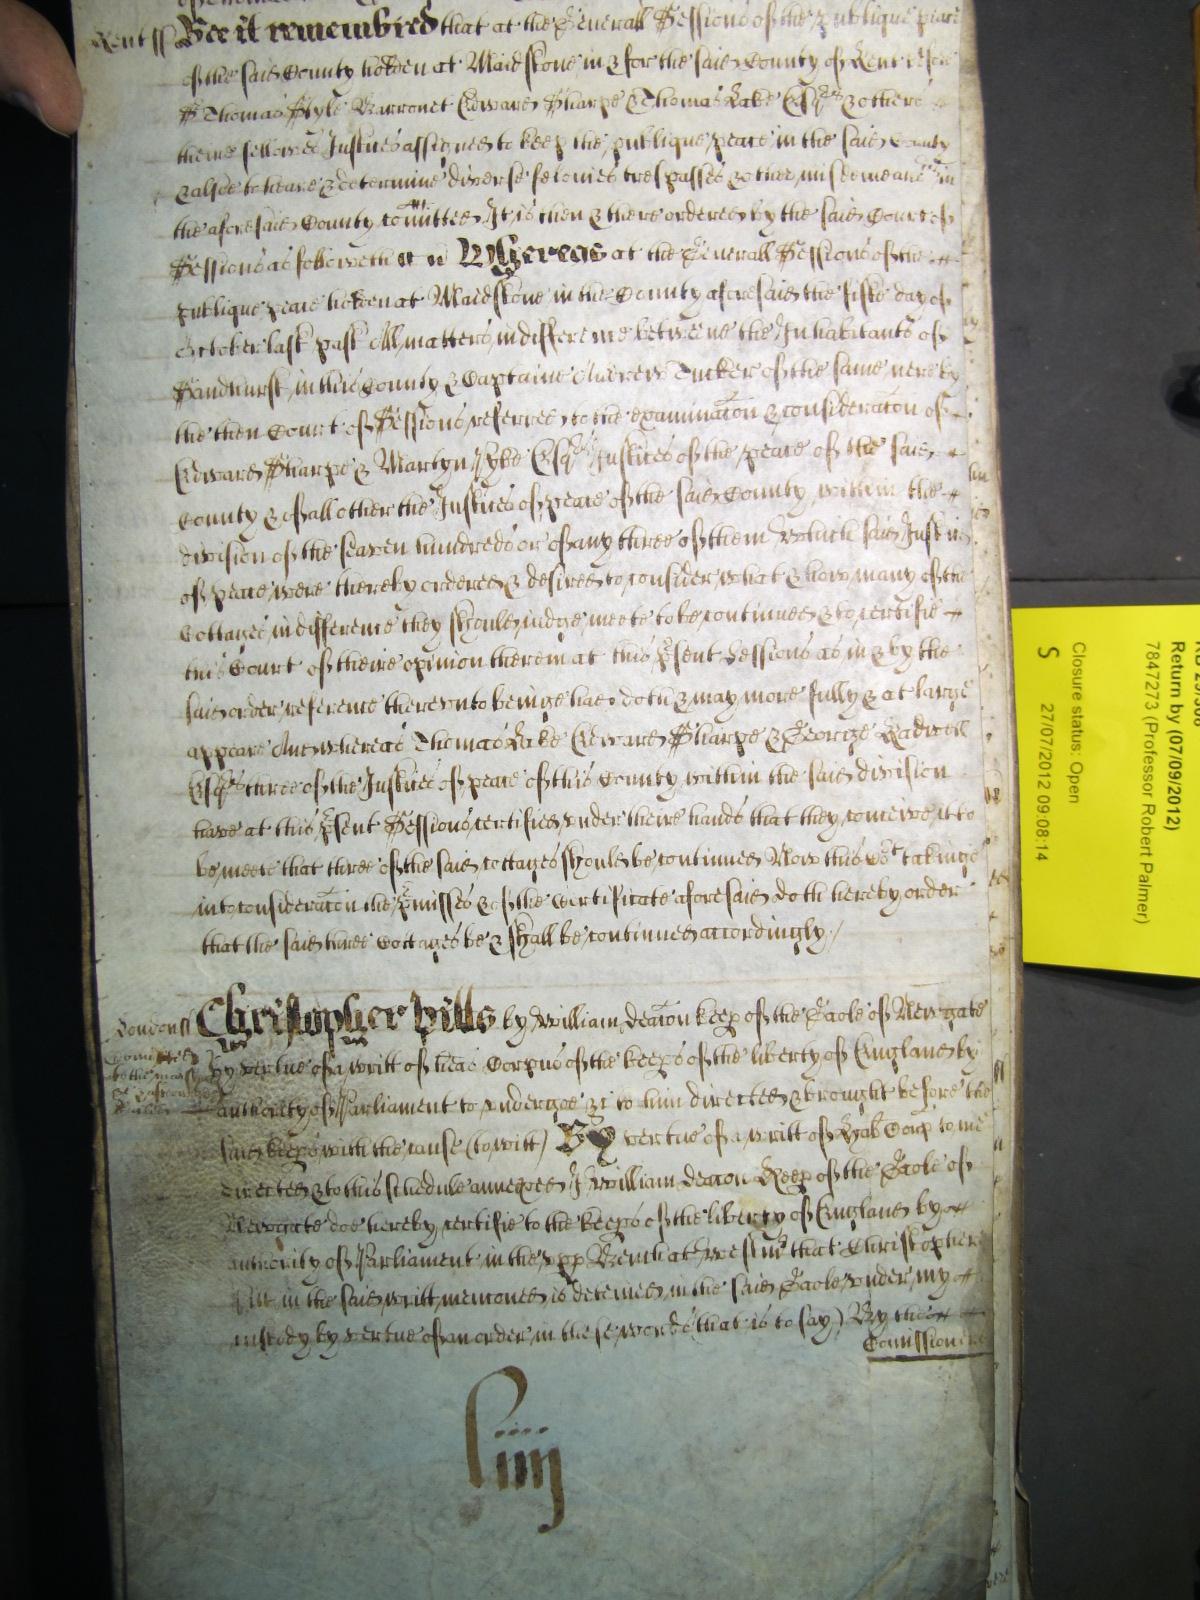 Kent ss Bee it remembred that at the Generall Sessions of the publique peace
of the said County holden at Maidstone in & for the said County of Kent before
Thomas Style Barronet Edward Sharpe & Thomas Rake Esqrs & others
theire fellowes Justices assigned to keep the publique peace in the said County
& alsoe to heare & determine diverse felonies trespasses & other misdemeanrs in
the aforesaid County comitted It is then & there ordered by the said Court of
Sessions as followeth Whereas at the Generall Sessions of the
publique peace holden at Maidstone in the County aforesaid the fifth day of
October last past All matters in difference betweene the Inhabitants of
Sandhurst in this County & Captaine Andrew Tucker of the same were by
the then Court of Sessions referred to the examinacon & consideracon of
Edward Sharpe & Martyn Pyke Esqrs Justices of the peace of the said
County & of all other the Justices of peace of the said County within the
division of the seaven hundreds or of any three of them which said Justices
of peace were thereby ordered & desired to consider what & how many of the
Cottages in difference they should judge meete to be continued & to certifie
this Court of theire opinion therein at this psent Sessions as in & by the
said order reference thereunto beinge had doth & may more fully & at large
appeare And whereas Thomas Rake Edward Sharpe & George Kadwell
Esqrs three of the Justices of peace of this County within the said division
have at this psent Sessions certified under theire hands that they conceive it to
be meete that three of the said cottages should be continued Now this Cort takinge
into consideracon the pmisses & of the Certificate aforesaid doth hereby order
that the said three Cottages be & shall be continued accordingly /
London ss Christopher Hills by William Deacon keep of the Gaole of Newgate
Comitted
to the
by vertue of a writt of heas Corpus of the keeps of the liberty of England by
authority of Parliament to undergoe &c to him directed & brought before the
said keeps with the cause (to witt) By vertue of a writt of Hab Corp to me
directed & to this schedule annexed I William Deacon Keep of the Gaole of
Newgate doe hereby certifie to the keeps of the liberty of England by
authority of Parliament in the upp Bench at Westmr that Christopher
in the said writt menconed is deteined in the said Gaole under my
custody by vertue of an order in these words (that is to say) By the
Comissioners
iiij
Return by (07/09/2012)
7847273 (Professor Robert Palmer)
Closure status: Open
S 27/07/2012 09:08:14